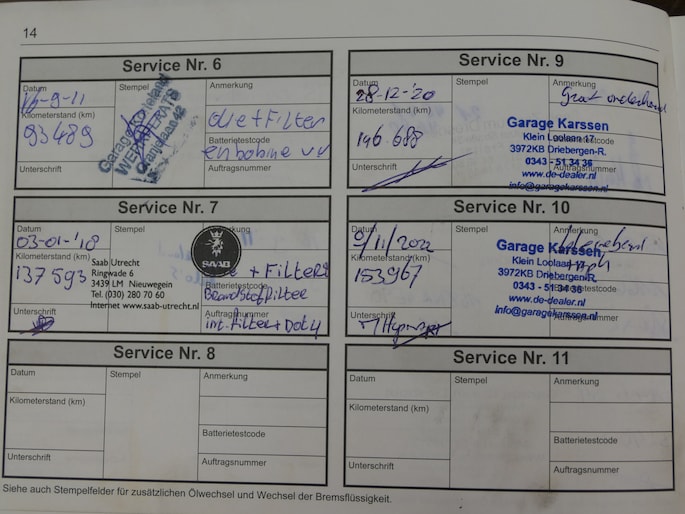 14
Service Nr. 6
Datum
Stempel
Anmerkung
Kilometerstand (km)
93489
olie + Filter
Batterietestcode
en bobine vv
Unterschrift
Auftragsnummer
Oranjelaan 42
Service Nr. 9
Datum
28-12-'20
Stempel
Anmerkung
Groot onderhoud
Kilometerstand (km)
146.688
Garage Karssen
Klein Loolaan 17
3972KB Driebergen-R.
0343 - 51 34 36
www.de-dealer.nl
info@garagekarssen.nl
Unterschrift
Auftragsnummer
Service Nr. 7
Datum
03-01-'18
Stempel
SAAB
Kilometerstand (km)
137593
Saab Utrecht
Ringwade 6
3439 LM Nieuwegein
Tel. (030) 280 70 60
Internet www.saab-utrecht.nl
+ Filters
Batterietestcode
Brandstoffilter
Unterschrift
Auftragsnummer
int. Filter + Dot 4
Service Nr. 10
Datum
9/11/2022
Stempel
Anmerkung
Kilometerstand (km)
153967
Garage Karssen
Klein Loolaan 17
3972KB Driebergen-R.
0343 - 51 34 36
www.de-dealer.nl
info@garagekarssen.nl
Batterietestcode
Unterschrift
Auftragsnummer
Service Nr. 8
Datum
Stempel
Anmerkung
Kilometerstand (km)
Batterietestcode
Unterschrift
Auftragsnummer
Service Nr. 11
Datum
Stempel
Anmerkung
Kilometerstand (km)
Batterietestcode
Unterschrift
Auftragsnummer
Siehe auch Stempelfelder für zusätzlichen Ölwechsel und Wechsel der Bremsflüssigkeit.